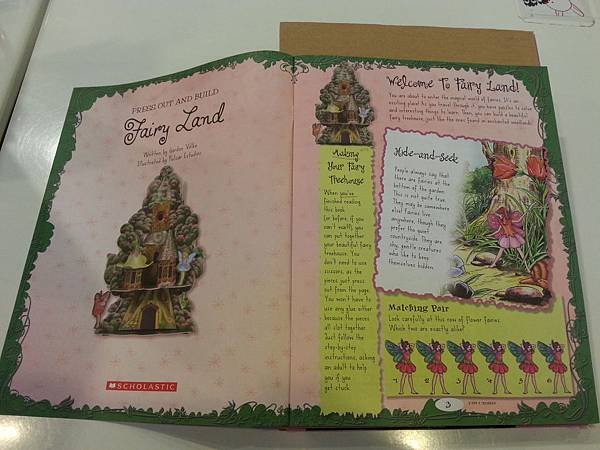 PRESS OUT AND BUILD
Fairy Land
Written by Gordon Volke
Illustrated by Pulsar Estudios
SCHOLASTIC
Welcome To Fairy Land!
You are about to enter the magical world of fairies. It's an
exciting place! As you travel through it, you have puzzles to solve
and interesting things to learn. Then, you can build a beautiful
fairy treehouse, just like the ones found in enchanted woodlands!
Making
Your Fairy
Treehouse
When you've
finished reading
this book
(or before, if you
can't wait!), you
can put together
your beautiful fairy
treehouse. You
don't need to use
scissors, as the
pieces just press
out from the page.
You won't have to
use any glue either
because the pieces
all slot together.
Just follow the
step-by-step
instructions, asking
an adult to help
you if you
get stuck.
Hide-and-Seek
People always say that
there are fairies at the
bottom of the garden.
This is not quite true.
They may be somewhere
else! Fairies live
anywhere, though they
prefer the quiet
countryside. They are
shy, gentle creatures
who like to keep
themselves hidden.
Matching Pair
Look carefully at this row of flower fairies.
Which two are exactly alike?
1 2 3 4 5 6
3